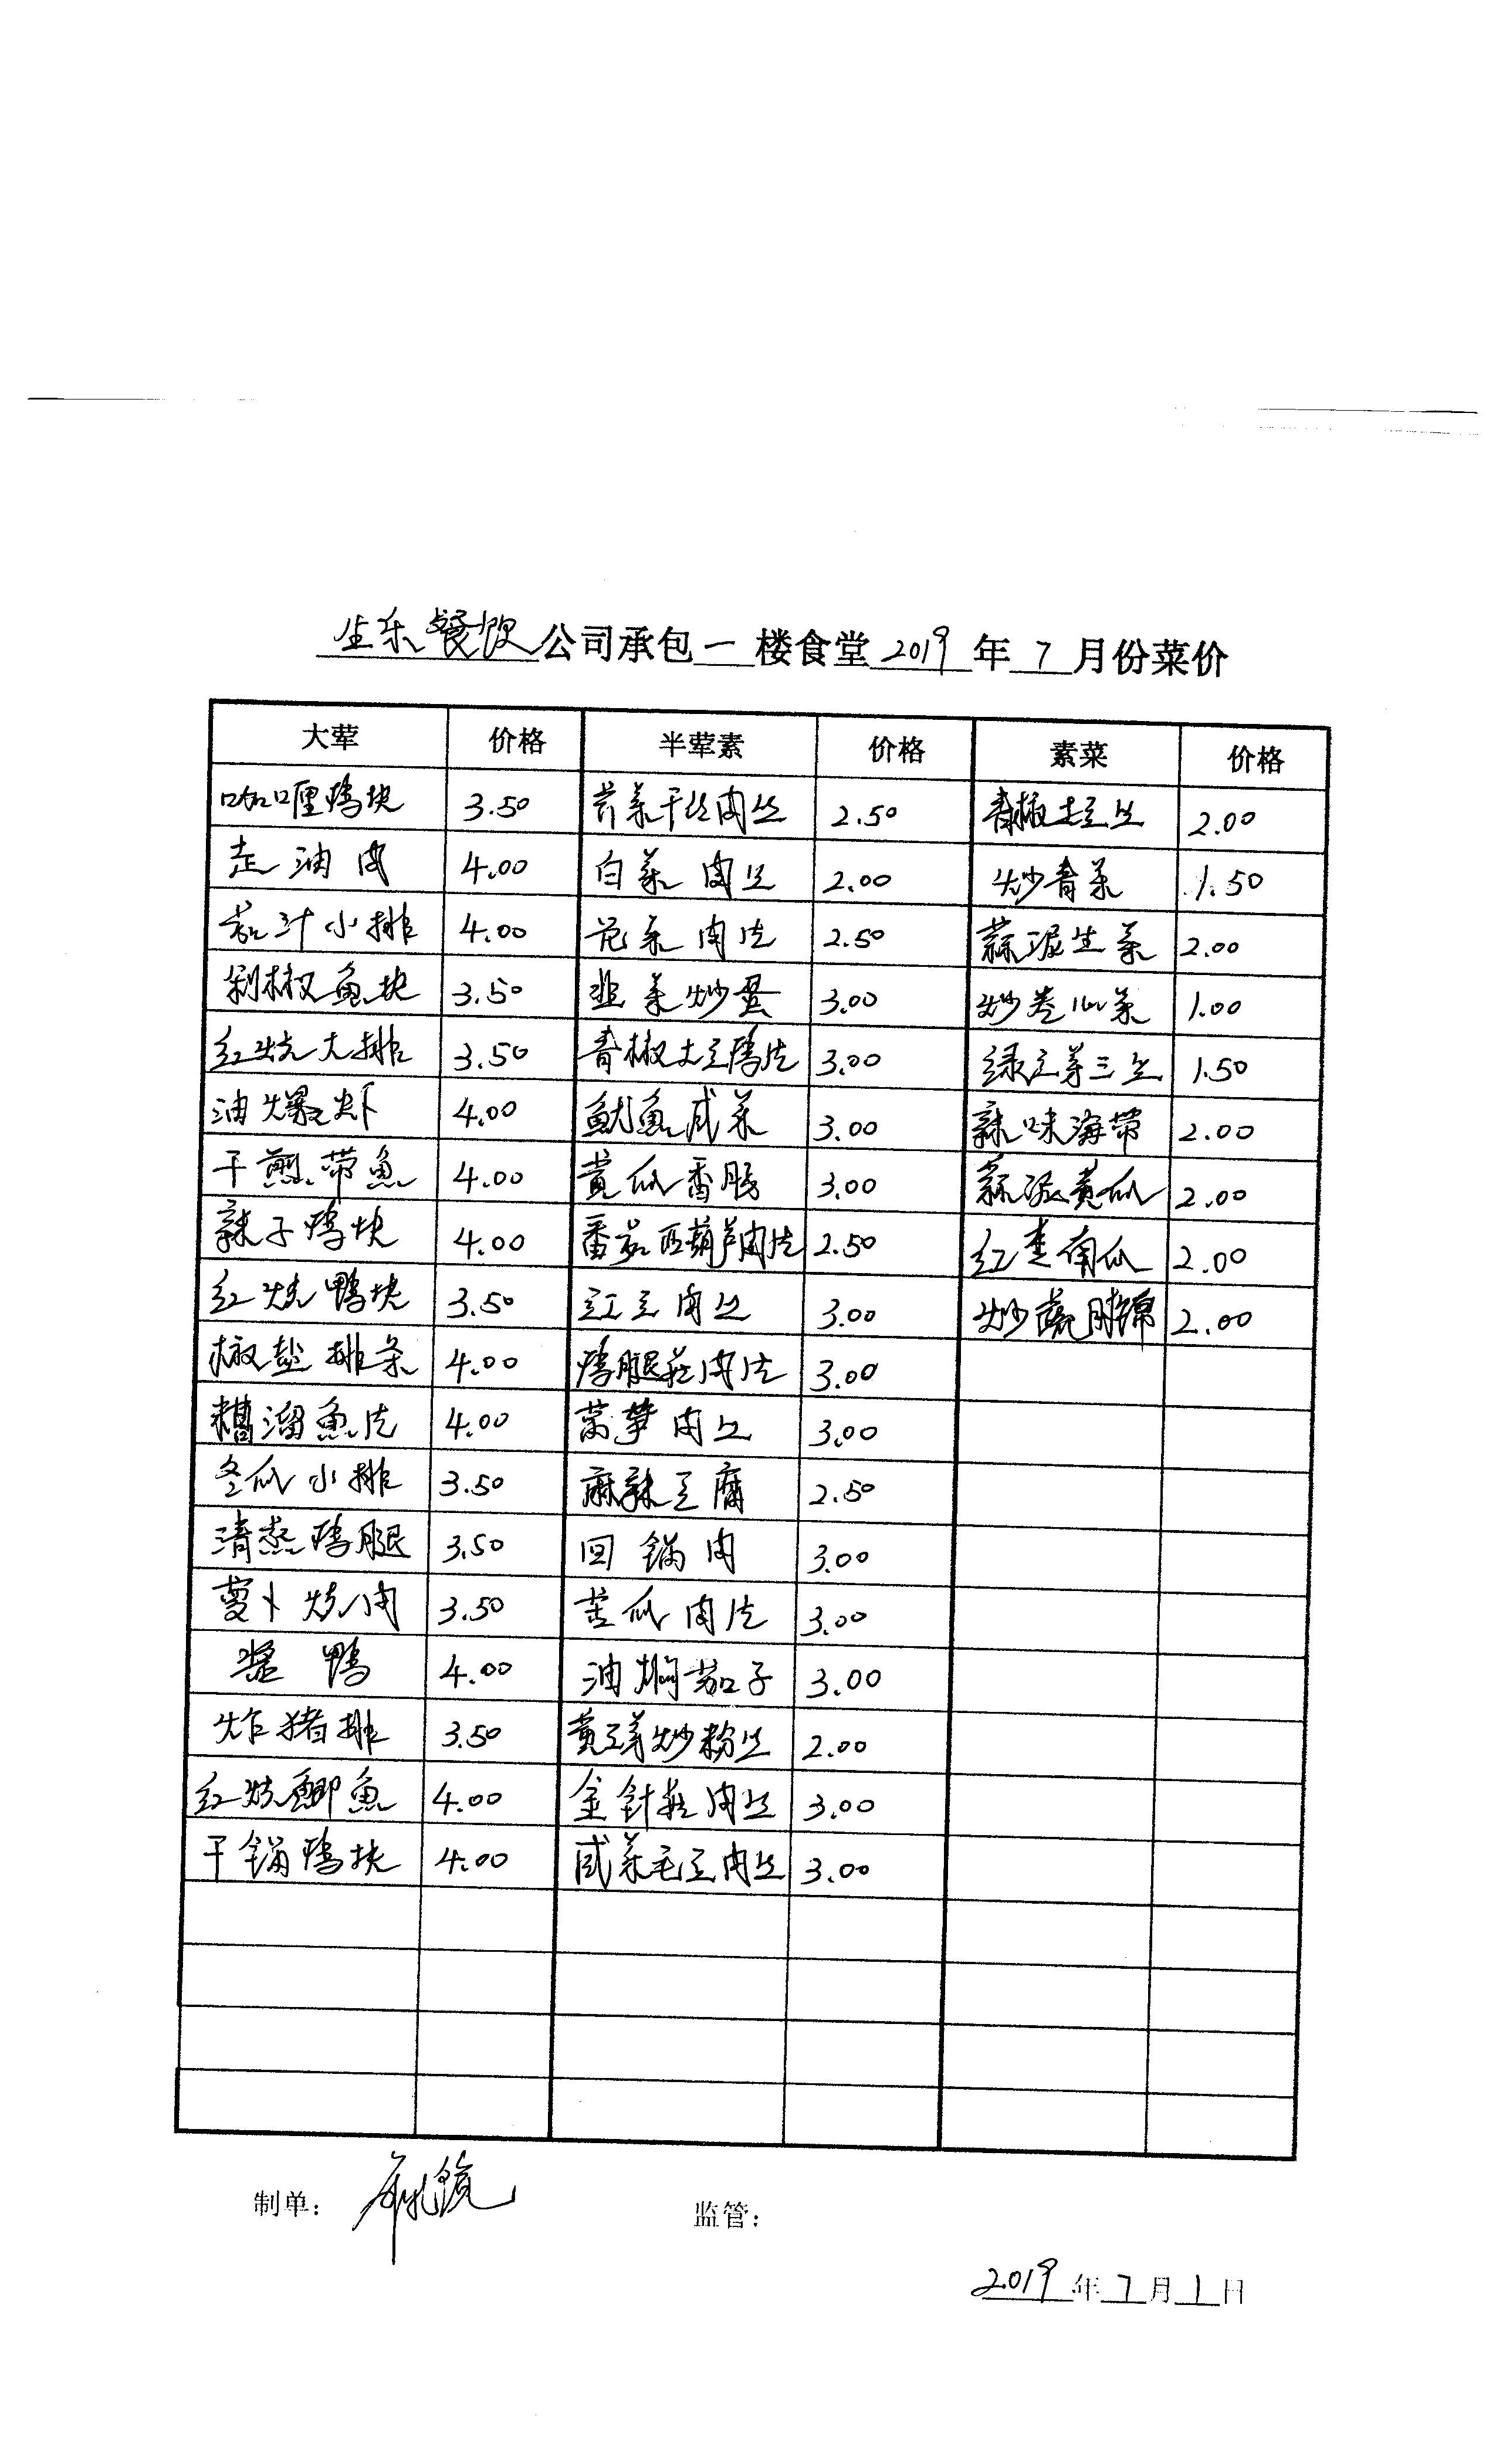 生乐餐饮公司承包一楼食堂2019年7月份菜价
大荤 价格 半荤素 价格 素菜 价格
咖喱鸡块 3.50 芹菜干丝肉丝 2.50 青椒土豆丝 2.00
走油肉 4.00 白菜肉丝 2.00 炒青菜 1.50
茄汁小排 4.00 花菜肉片 2.50 蒜泥生菜 2.00
剁椒鱼块 3.50 韭菜炒蛋 3.00 炒卷心菜 1.00
红烧大排 3.50 青椒土豆鸡片 3.00 绿豆芽三丝 1.50
油爆虾 4.00 鱿鱼咸菜 3.00 辣味海带 2.00
干煎带鱼 4.00 黄瓜香肠 3.00 蒜泥黄瓜 2.00
辣子鸡块 4.00 番茄西葫芦肉片 2.50 红枣南瓜 2.00
红烧鸭块 3.50 豇豆肉丝 3.00 炒 2.00
椒盐排条 4.00 鸡腿菇肉片 3.00
糟溜鱼片 4.00 莴笋肉丝 3.00
冬瓜小排 3.50 麻辣豆腐 2.50
清蒸鸡腿 3.50 回锅肉 3.00
萝卜烧肉 3.50 苦瓜肉片 3.00
酱鸭 4.00 油焖茄子 3.00
炸猪排 3.50 黄豆芽炒粉丝 2.00
红烧鲫鱼 4.00 金针菇肉丝 3.00
干锅鸡块 4.00 咸菜毛豆肉丝 3.00
制单: 监管:
2019年7月1日